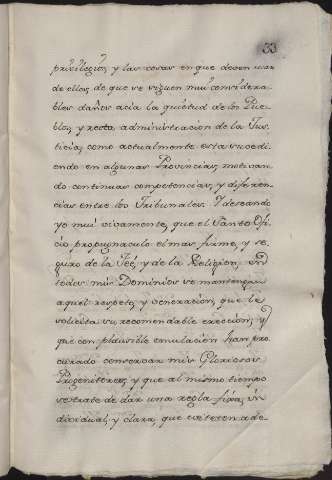 33
privilegios, y las cosas en que deven usar
de ellos, de que se siguen mui considera-
bles daños acia la quietud de los Pue-
blos, y recta administracion de la Jus-
ticia, como actualmente esta sucedi-
endo en algunas Provincias, motivan-
do continuas competencias, y diferen-
cias entre los Tribunales. I deseando
yo mui vivamente, que el Santo Ofi-
cio propugnaculo el mas firme, y se-
guro de la Fee, y de la Religion, en
todos mis Dominios se mantenga
aquel respeto, y veneracion, que le
solicita su recomendable ereccion, y
que con plausible emulacion han pro-
curado conservar mis Gloriosos
Progenitores, y que al mismo tiempo
se trate de dar una regla fixa, in-
dividual, y clara, que evite en ade-